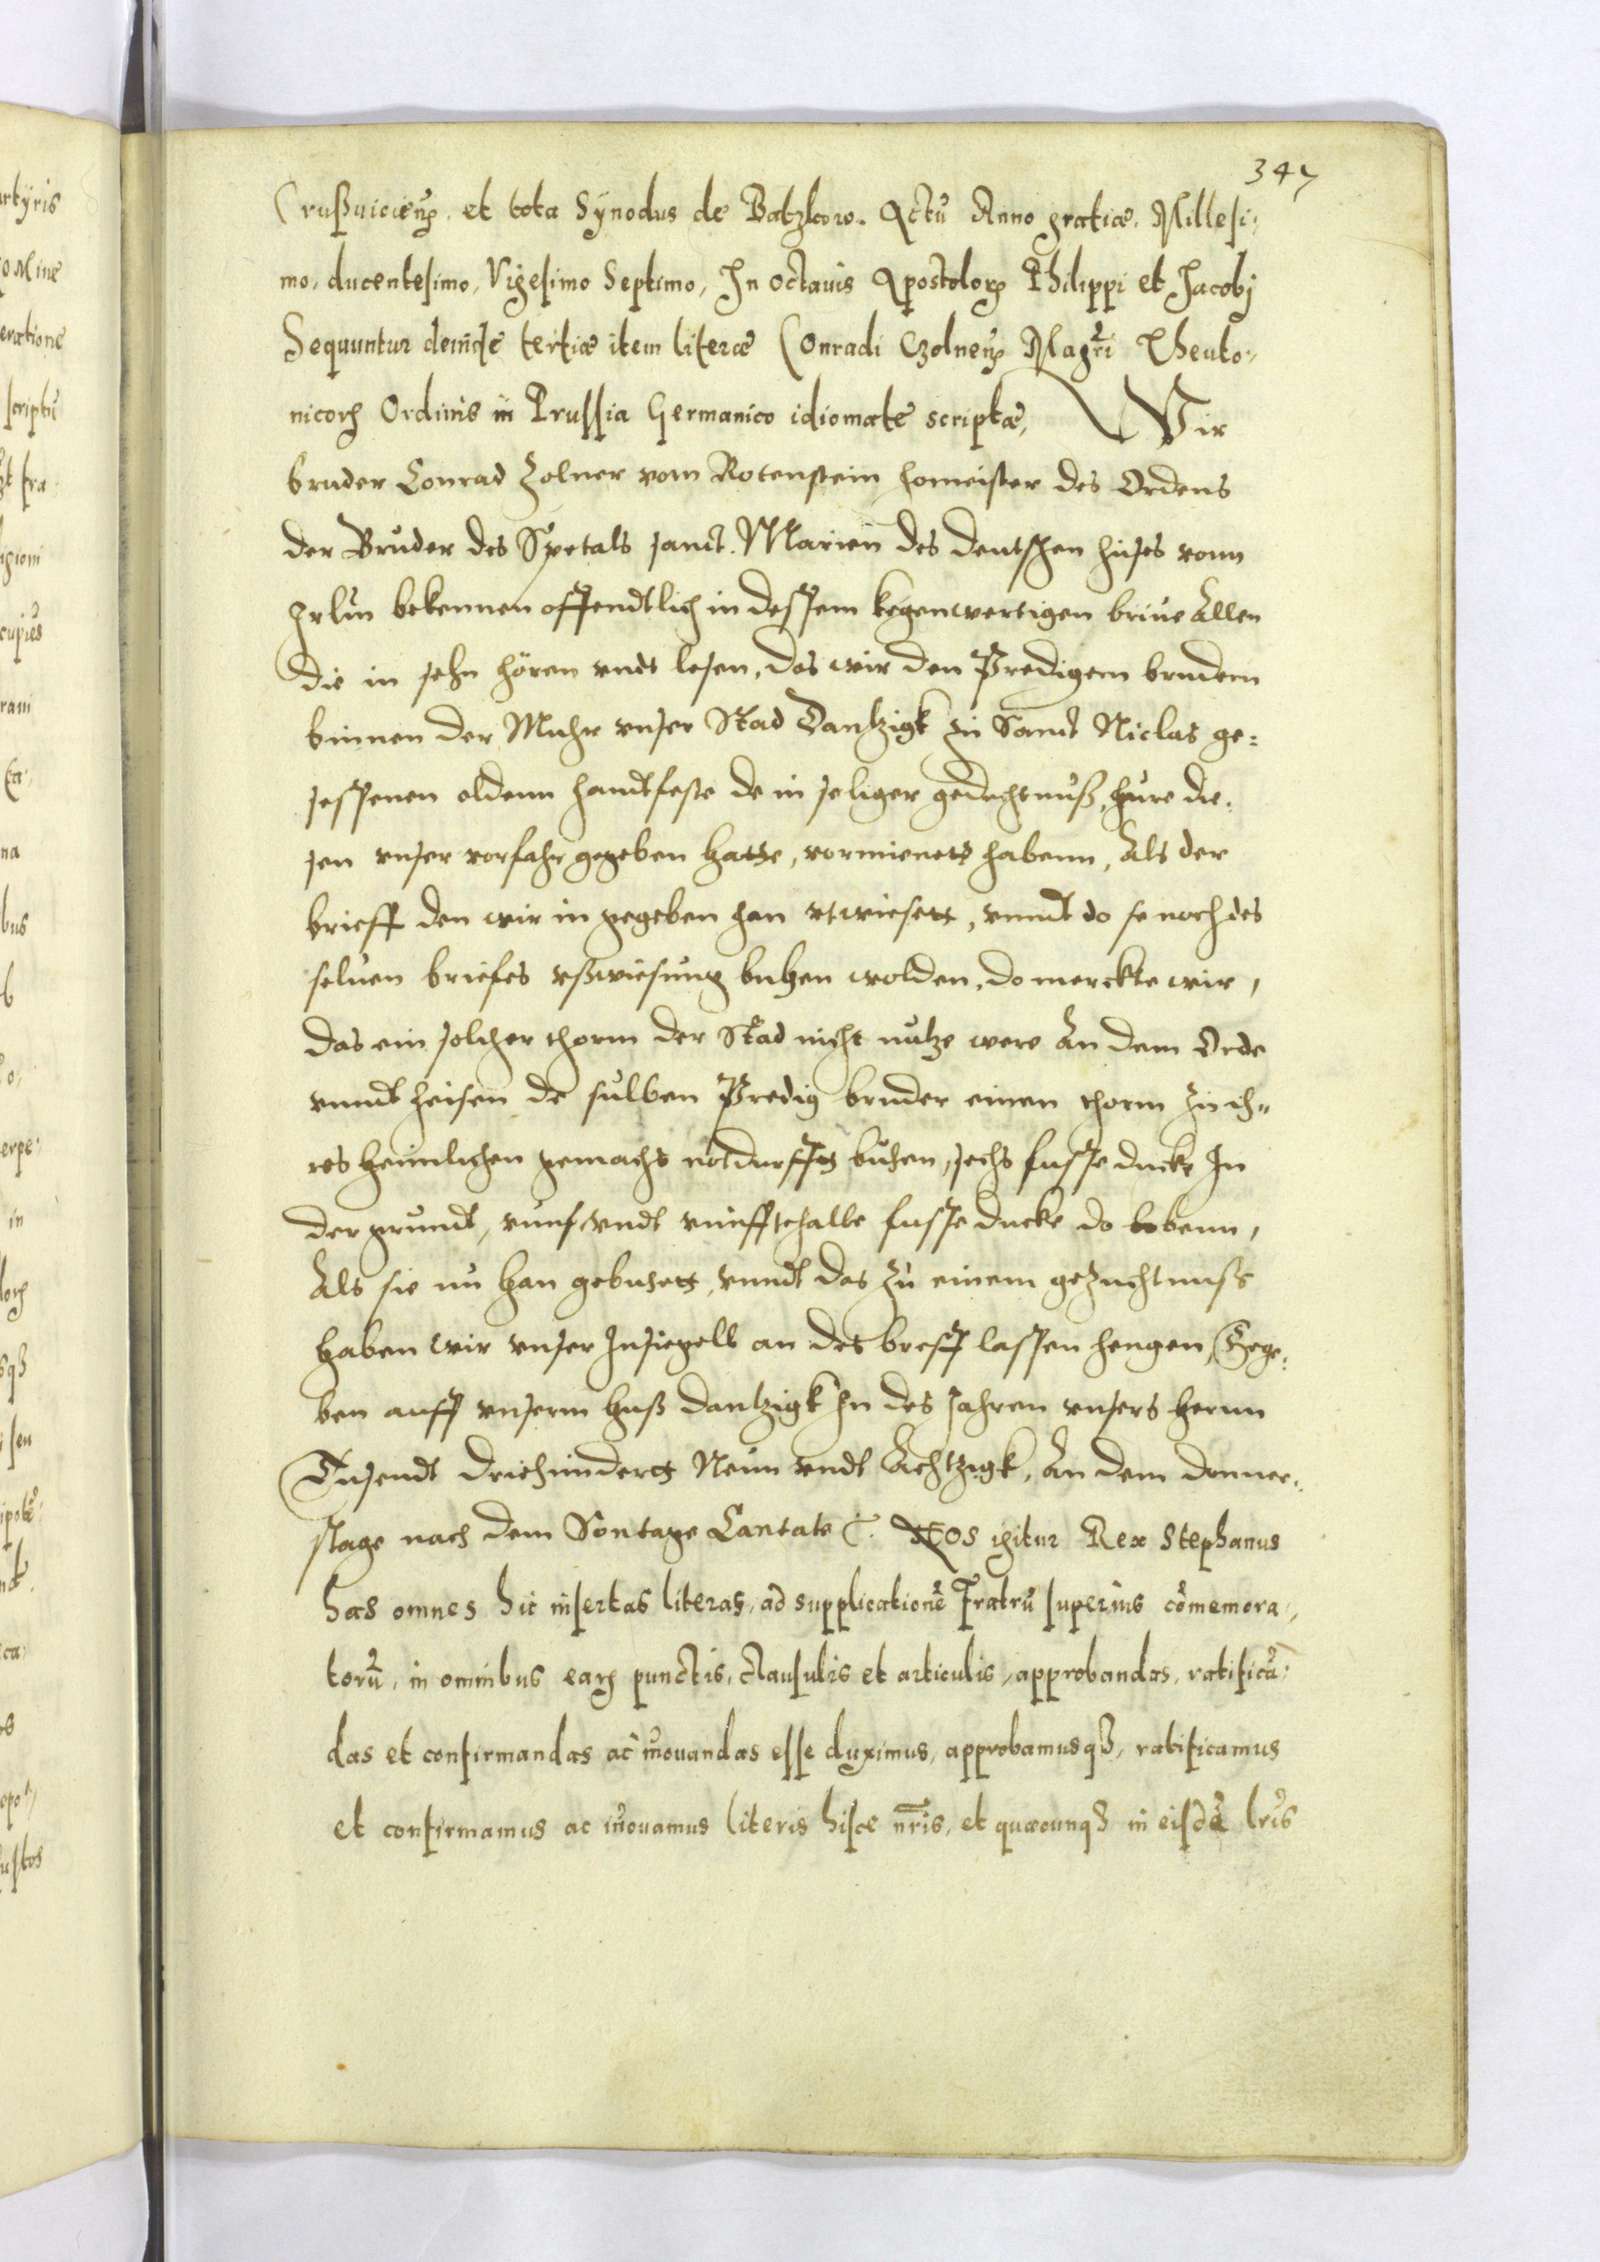 347
Crußvicieñ. et tota Synodus de Batzkow. Actũ Anno gratiæ. Millesi:
mo, ducentesimo, Vigesimo Septimo, In octauis Apostolorꝫ Philippi et Jacobj
Sequuntur deinde tertiæ item literæ Conradi Czolneꝝ Magr̃i Theuto:
nicorꝫ Ordinis in Prussia Germanico idiomate scriptæ, Wir
bruder Conrad Zolner vom Rotenstein homeister des Ordens
der Bruder des Spetals sanct. Marien des deutschen huses vonn
Jrlm bekennen offendtlich in dessem kegenwertigen briue Allen
die in sehn hören vndt lesen, das wir den Predigern brudern
binnen der Muhr vnser Stad Dantzigk zu Sanct Niclas ge:
sessenen oldenn handtfeste de in seliger gedechtnuß, hure die:
sen vnser vorfahr gegeben hatte, vornienets habenn, Als der
brieff den wir in gegeben han vtwieset, vnndt do se noch des
seluen briefes vßwiesung buhen wolden, do merckte wir,
das ein solcher thorm der Stad nicht nutze were An dem Orde
vnndt heisen de sulben Predig bruder einen thorm zu ih=
res heimlichen gemachs notdurfft buhen, sechs fusse ducke In
der grundt, vunf vndt vunfftehalbe fusse ducke do bobenn,
Als sie nu han gebuhett, vnndt das zu einem gezuchtnuß
haben wir vnser Insiegell an des breff lassen hengen, Gege:
ben auff vnserm huß dantzigk In des Jahren vnsers hernn
Tusendt driehundertt Neun vndt Achtzigk, An dem donner:
stage nach dem Sontage Cantate. NOS igitur Rex Stephanus
has omnes hic insertas literas, ad supplicationẽ Fratrũ superius com̃emora:
torũ, in omnibus earꝫ punctis, clausulis et articulis, approbandas, ratificã:
das et confirmandas ac iñouandas esse duximus, approbamusqꝫ, ratificamus
et confirmamus ac iñouamus literis hisce nr̃is, et quæcunqꝫ in eisdẽ lr̃is